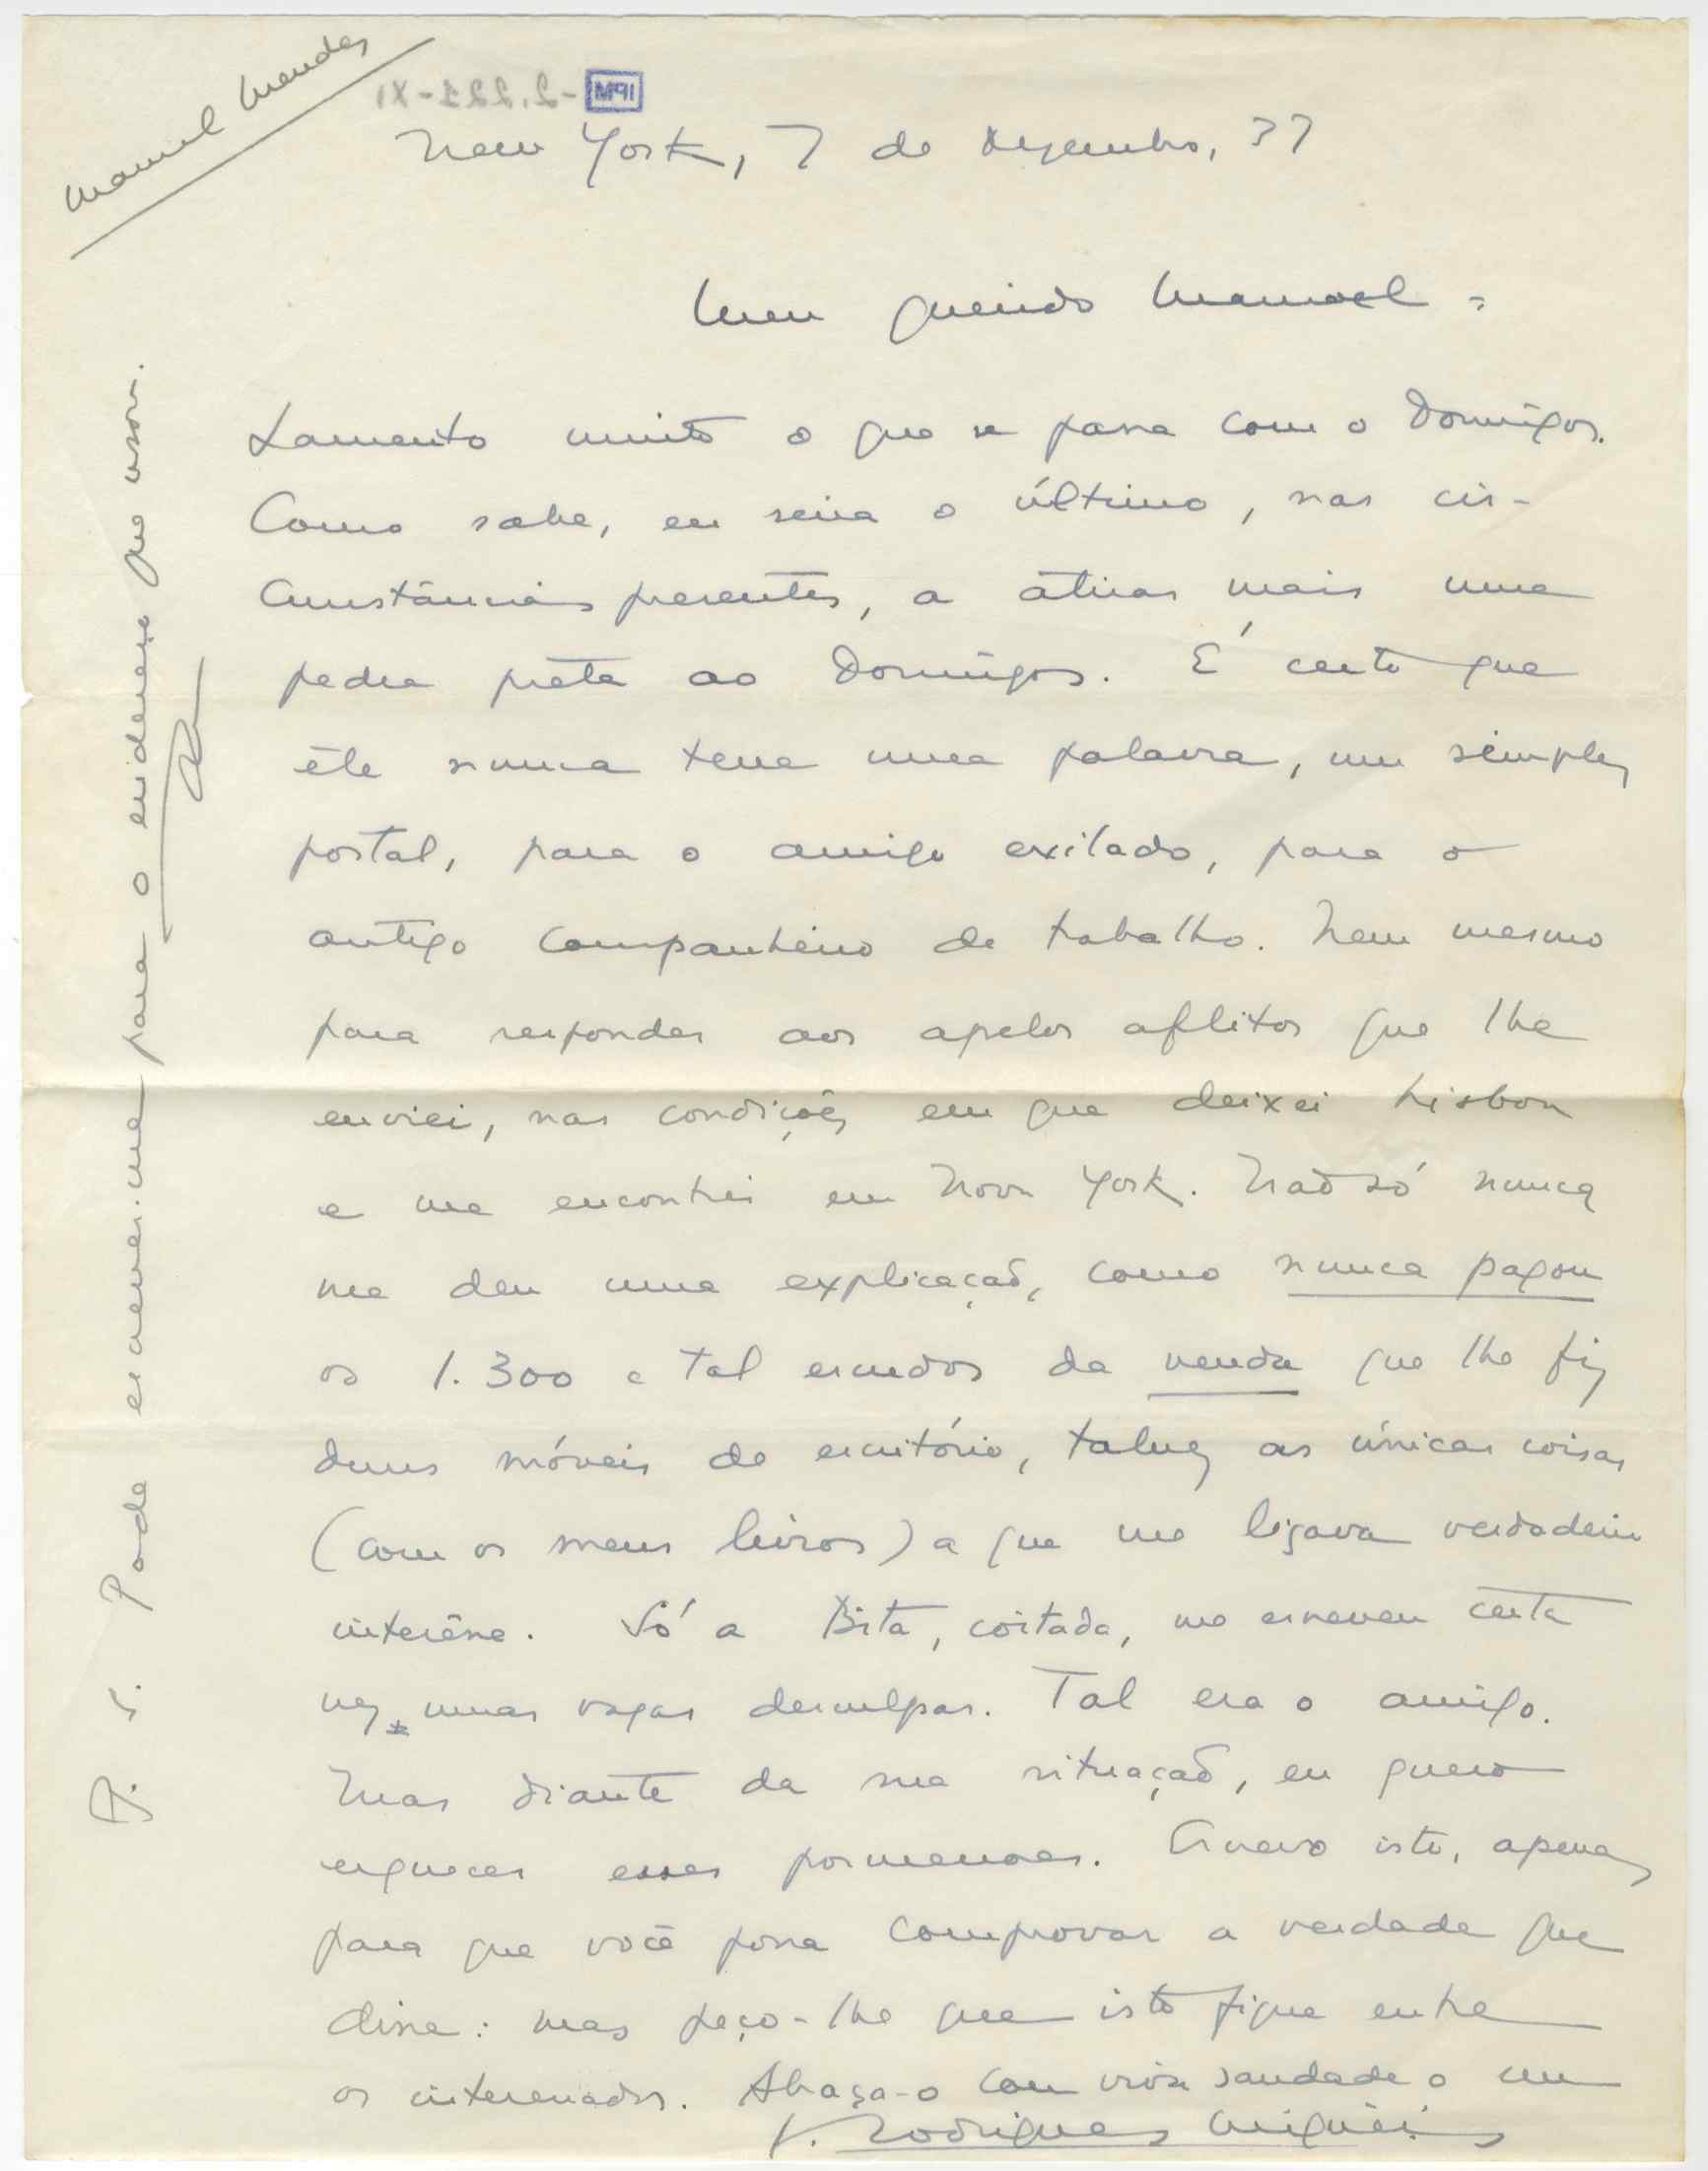 Manuel Mendes
IPM -2.221-XI
New York, 7 de Dezembro, 37
Meu querido Manoel =
Lamento muito o que se passa com o Domingos.
Como sabe, eu seria o último, nas cir-
cunstâncias presentes, a atirar mais uma
pedra preta ao Domingos. É certo que
êle nunca teve uma palavra, um simples
postal, para o amigo exilado, para o
antigo companheiro de trabalho. Nem mesmo
para responder aos apelos aflitos que lhe
enviei, nas condições em que deixei Lisboa
e me encontrei em Nova York. Não só nunca
me deu uma explicação, como nunca pagou
os 1.300 e tal escudos da venda que lhe fiz
duns móveis de escritório, talvez as únicas coisas
(com os meus livros) a que me ligava verdadeiro
interêsse. Só a Bita, coitada, me escreveu certa
vez umas vagas desculpas. Tal era o amigo.
Mas diante da sua situação, eu quero
esquecer esses pormenores. Escrevo isto, apenas
para que você possa comprovar a verdade que
disse: mas peço-lhe que isto fique entre
os interessados. Abraça-o com viva saudade o seu
J. Rodrigues Miguéis
P. S. Pode escrever-me para o enderêço que usou.